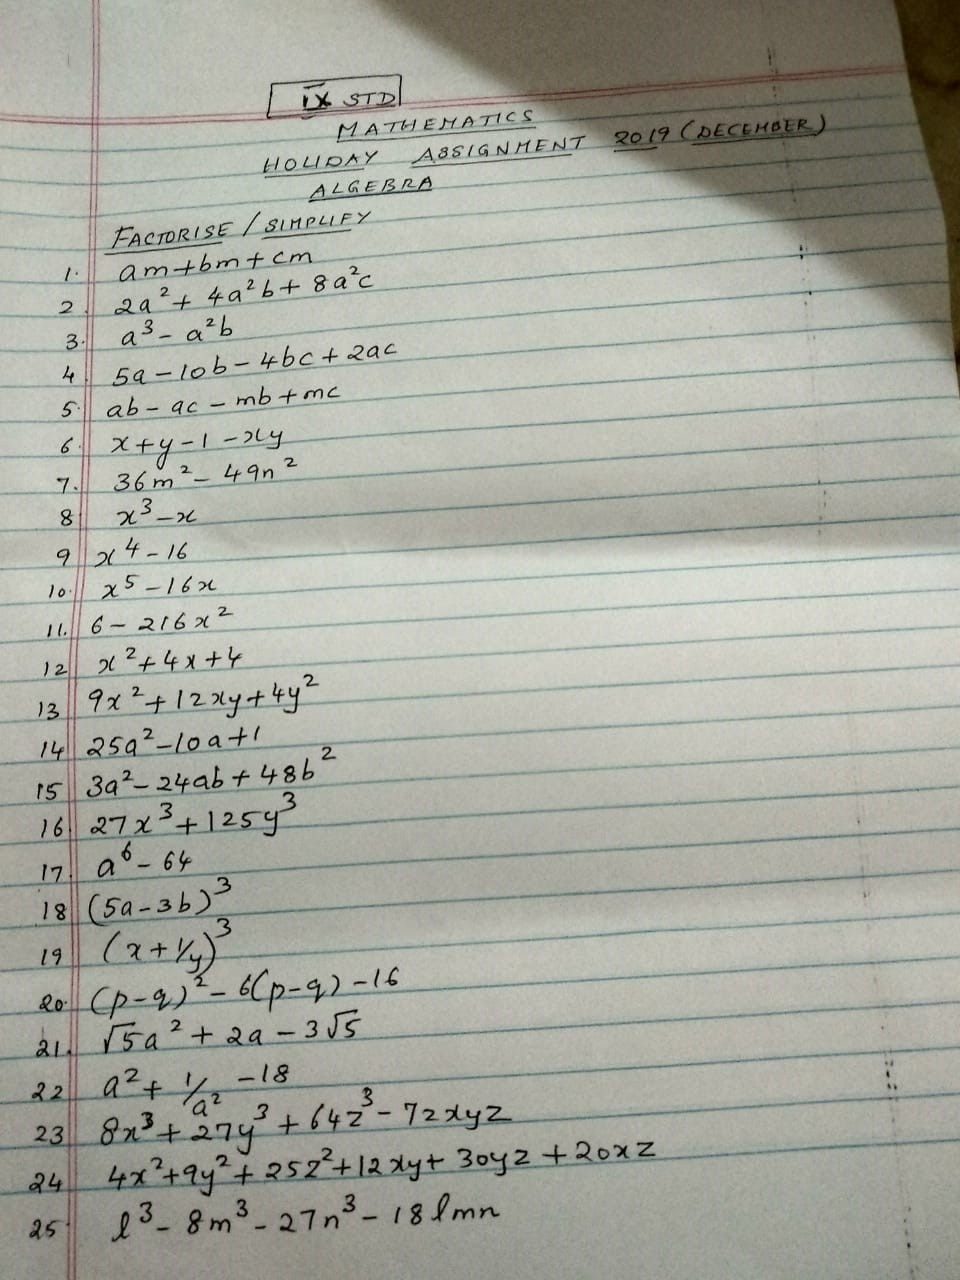 IX STD
MATHEMATICS
HOLIDAY ASSIGNMENT 2019 (DECEMBER)
ALGEBRA
FACTORISE / SIMPLIFY
1. am+bm+cm
2. 2a² + 4a²b + 8a²c
3. a³ - a²b
4. 5a - 10b - 4bc + 2ac
5. ab - ac - mb + mc
6. x+y-1-xy
7. 36m² - 49n²
8 x³-x
9 x⁴-16
10. x⁵-16x
11. 6 - 216x²
12 x²+4x+4
13 9x²+12xy+4y²
14 25a²-10a+1
15 3a²-24ab+48b²
16. 27x³+125y³
17. a⁶-64
18 (5a-3b)³
19 (x+1/y)³
20. (p-q)²-6(p-q)-16
21. √5a²+2a-3√5
22 a²+1/a²-18
23 8x³+27y³+64z³-72xyz
24 4x²+9y²+25z²+12xy+30yz+20xz
25 l³-8m³-27n³-18lmn